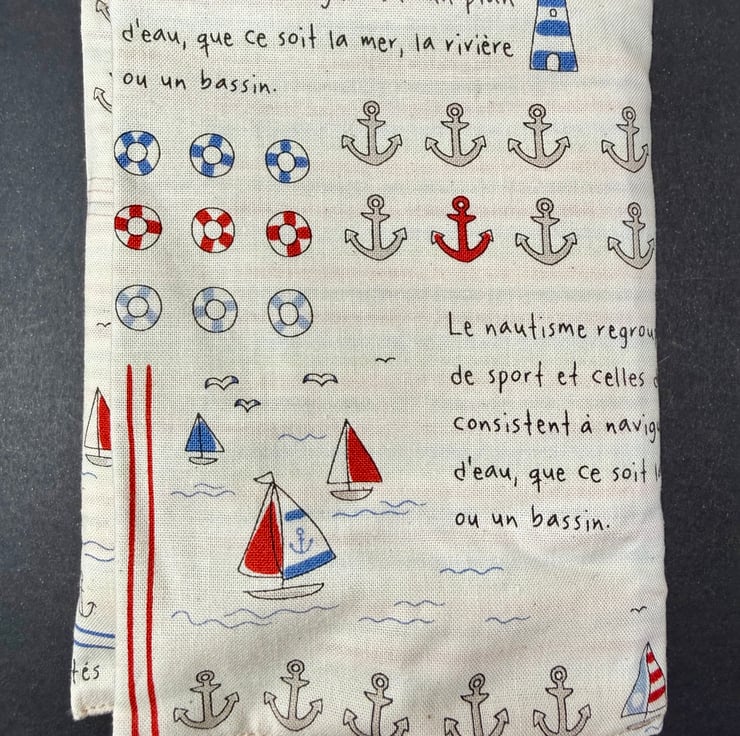 d'eau, que ce soit la mer, la rivière
ou un bassin.
Le nautisme regrou
de sport et celles
consistent à navig
d'eau, que ce soit
ou un bassin.
tés